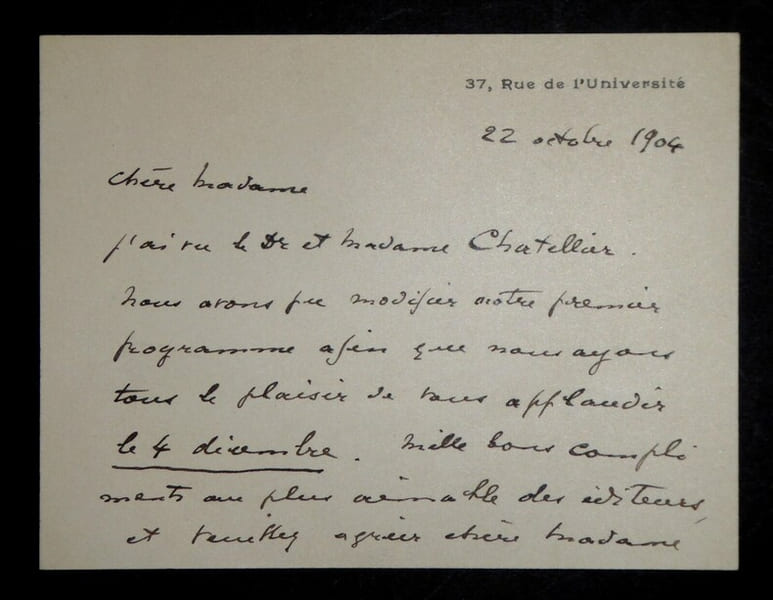 37, Rue de l'Université
22 octobre 1904
Chère Madame
J'ai vu le Dr et Madame Chatellier.
Nous avons pu modifier notre premier
programme afin que nous ayons
tous le plaisir de vous applaudir
le 4 décembre. Mille bons compli
ments au plus aimable des éditeurs,
et veuillez agréer chère Madame